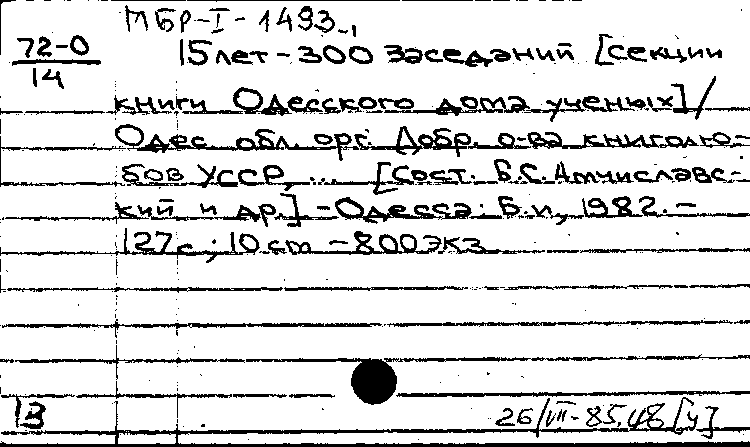 МБР-I-1493
72-0
14
15 лет - 300 заседаний [секции
книги Одесского дома ученых] /
Одес. обл. орг. Добр. о-ва книголю-
бов УССР, ... [Сост. В.С. Амчиславс-
кий и др.] - Одесса: Б.и, 1982. -
127 с; 10 см - 800 экз
13
26/VII-85. 48 [у]